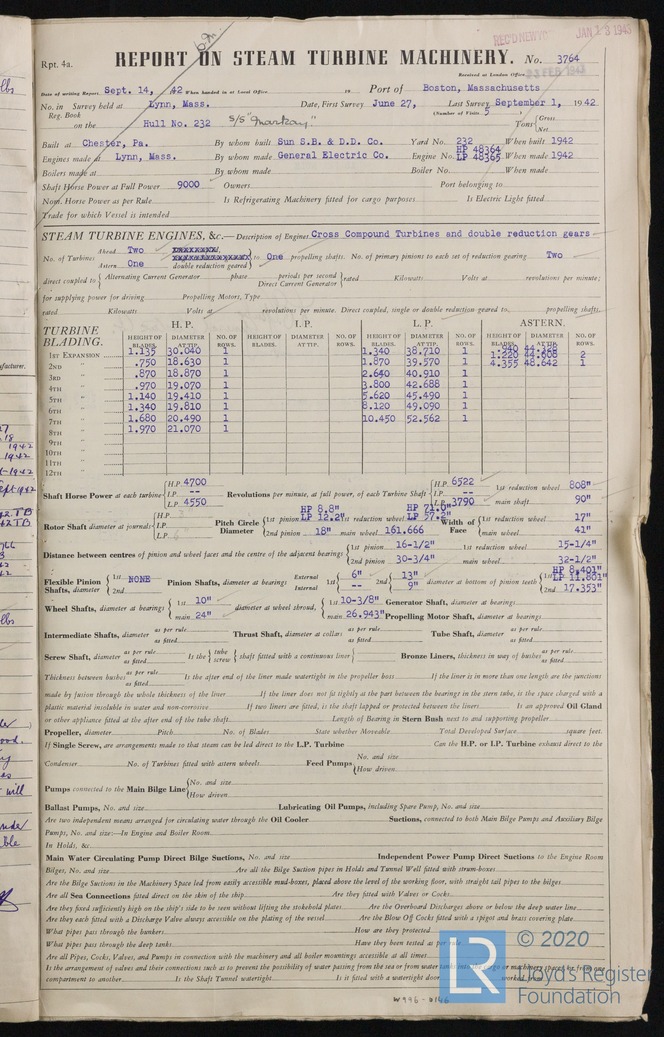 REC'D NEW YORK JAN 18 1943
Rpt. 4a.
REPORT ON STEAM TURBINE MACHINERY. No. 3764
Received at London Office 23 FEB 1943
Date of writing Report Sept. 14, 42 When handed in at Local Office 19 Port of Boston, Massachusetts
No. in Survey held at Lynn, Mass. Date, First Survey June 27, Last Survey September 1, 1942
Reg. Book (Number of Visits 5 )
on the Hull No. 232 S/S "Markay" Tons { Gross
Net
Built at Chester, Pa. By whom built Sun S.B. & D.D. Co. Yard No. 232 When built 1942
Engines made at Lynn, Mass. By whom made General Electric Co. Engine No. HP 48364 LP 48365 When made 1942
Boilers made at By whom made Boiler No. When made
Shaft Horse Power at Full Power 9000 Owners Port belonging to
Nom. Horse Power as per Rule Is Refrigerating Machinery fitted for cargo purposes Is Electric Light fitted
Trade for which Vessel is intended
STEAM TURBINE ENGINES, &c.—Description of Engines Cross Compound Turbines and double reduction gears
No. of Turbines Ahead Two to One propelling shafts. No. of primary pinions to each set of reduction gearing Two
Astern One double reduction geared
direct coupled to { Alternating Current Generator phase periods per second } rated Kilowatts Volts at revolutions per minute;
Direct Current Generator
for supplying power for driving Propelling Motors, Type
rated Kilowatts Volts at revolutions per minute. Direct coupled, single or double reduction geared to propelling shafts.
TURBINE BLADING. H.P. I.P. L.P. ASTERN.
HEIGHT OF BLADES. DIAMETER AT TIP. NO. OF ROWS. HEIGHT OF BLADES. DIAMETER AT TIP. NO. OF ROWS. HEIGHT OF BLADES. DIAMETER AT TIP. NO. OF ROWS. HEIGHT OF BLADES. DIAMETER AT TIP. NO. OF ROWS.
1ST EXPANSION 1.135 30.040 1 1.340 38.710 1 1.220 44.608 2
2ND " .750 18.630 1 1.870 39.570 1 4.355 48.642 1
3RD " .870 18.870 1 2.640 40.910 1
4TH " .970 19.070 1 3.800 42.688 1
5TH " 1.140 19.410 1 5.620 45.490 1
6TH " 1.340 19.810 1 8.120 49.090 1
7TH " 1.680 20.490 1 10.450 52.562 1
8TH " 1.970 21.070 1
9TH "
10TH "
11TH "
12TH "
Shaft Horse Power at each turbine { H.P. 4700 I.P. -- L.P. 4550 Revolutions per minute, at full power, of each Turbine Shaft { H.P. 6522 I.P. -- L.P. 3790 1st reduction wheel 808" main shaft 90"
Rotor Shaft diameter at journals { H.P. I.P. L.P. Pitch Circle Diameter { 1st pinion HP 8.8" LP 12.2" 1st reduction wheel HP 71.0" LP 57.2" Width of Face 1st reduction wheel 17"
2nd pinion 18" main wheel 161.666 main wheel 41"
Distance between centres of pinion and wheel faces and the centre of the adjacent bearings { 1st pinion 16-1/2" 1st reduction wheel 15-1/4"
2nd pinion 30-3/4" main wheel 32-1/2"
Flexible Pinion Shafts, diameter { 1st NONE 2nd Pinion Shafts, diameter at bearings External 1st 6" 2nd 13" Internal -- 9" diameter at bottom of pinion teeth { 1st HP 8.401" LP 11.801" 2nd 17.353"
Wheel Shafts, diameter at bearings { 1st 10" main 24" diameter at wheel shroud, { 1st 10-3/8" main 26.943" Generator Shaft, diameter at bearings
Propelling Motor Shaft, diameter at bearings
Intermediate Shafts, diameter as per rule as fitted Thrust Shaft, diameter at collars as per rule as fitted Tube Shaft, diameter as per rule as fitted
Screw Shaft, diameter as per rule as fitted Is the { tube screw } shaft fitted with a continuous liner { Bronze Liners, thickness in way of bushes as per rule as fitted
Thickness between bushes as per rule as fitted Is the after end of the liner made watertight in the propeller boss If the liner is in more than one length are the junctions
made by fusion through the whole thickness of the liner If the liner does not fit tightly at the part between the bearings in the stern tube, is the space charged with a
plastic material insoluble in water and non-corrosive If two liners are fitted, is the shaft lapped or protected between the liners Is an approved Oil Gland
or other appliance fitted at the after end of the tube shaft Length of Bearing in Stern Bush next to and supporting propeller
Propeller, diameter Pitch No. of Blades State whether Moveable Total Developed Surface square feet.
If Single Screw, are arrangements made so that steam can be led direct to the L.P. Turbine Can the H.P. or I.P. Turbine exhaust direct to the
Condenser No. of Turbines fitted with astern wheels Feed Pumps { No. and size
How driven
Pumps connected to the Main Bilge Line { No. and size
How driven
Ballast Pumps, No. and size Lubricating Oil Pumps, including Spare Pump, No. and size
Are two independent means arranged for circulating water through the Oil Cooler Suctions, connected to both Main Bilge Pumps and Auxiliary Bilge
Pumps, No. and size:—In Engine and Boiler Room
In Holds, &c.
Main Water Circulating Pump Direct Bilge Suctions, No. and size Independent Power Pump Direct Suctions to the Engine Room
Bilges, No. and size Are all the Bilge Suction pipes in Holds and Tunnel Well fitted with strum-boxes
Are the Bilge Suctions in the Machinery Space led from easily accessible mud-boxes, placed above the level of the working floor, with straight tail pipes to the bilges
Are all Sea Connections fitted direct on the skin of the ship Are they fitted with Valves or Cocks
Are they fixed sufficiently high on the ship's side to be seen without lifting the stokehold plates Are the Overboard Discharges above or below the deep water line
Are they each fitted with a Discharge Valve always accessible on the plating of the vessel Are the Blow Off Cocks fitted with a spigot and brass covering plate
What pipes pass through the bunkers How are they protected
What pipes pass through the deep tanks Have they been tested as per rule
Are all Pipes, Cocks, Valves, and Pumps in connection with the machinery and all boiler mountings accessible at all times
Is the arrangement of valves and their connections such as to prevent the possibility of water passing from the sea or from water tanks into the cargo or machinery spaces, or from one
compartment to another Is the Shaft Tunnel watertight Is it fitted with a watertight door worked
W996-0146
LR © 2020
Lloyd's Register
Foundation